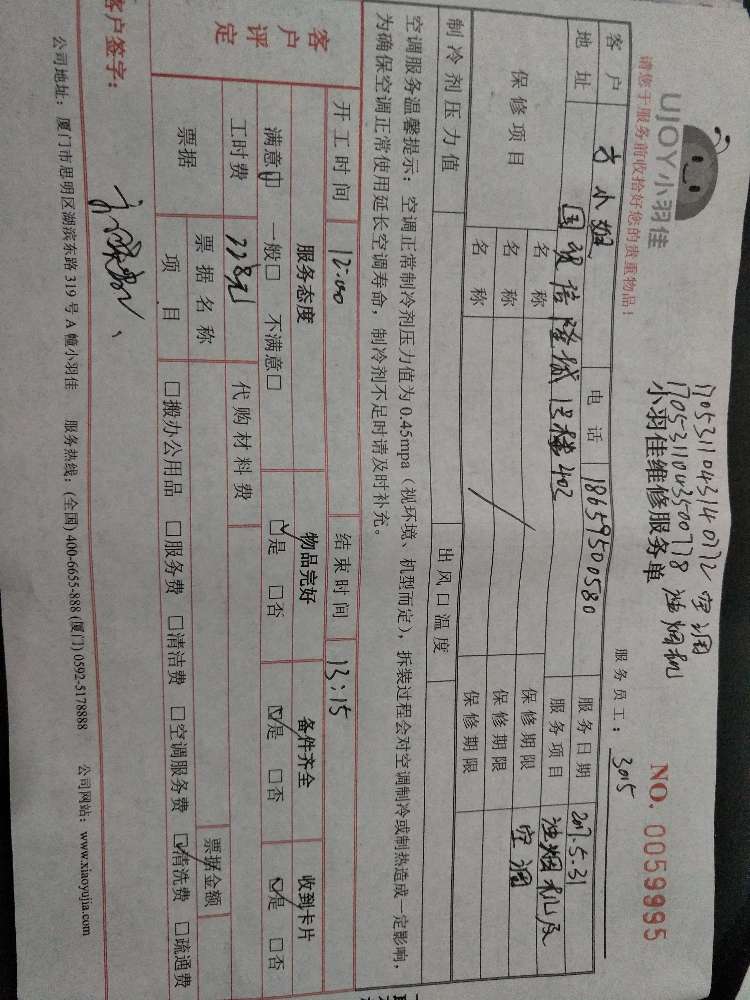 UJOY小羽佳
请您于服务前收拾好您的贵重物品!
1705311043140772 空调
1705311043500778 油烟机
小羽佳维修服务单
NO. 0059995
服务员工: 3015
客户 方小姐 电话 18659500580 服务日期 2017.5.31
地址 国贸信隆城 402 服务项目 油烟机及空调
保修项目 名称 保修期限
名称 保修期限
名称 保修期限
制冷剂压力值 出风口温度
空调服务温馨提示:空调正常制冷剂压力值为 0.45mpa(视环境、机型而定),拆装过程会对空调制冷或制热造成一定影响,
为确保空调正常使用延长空调寿命,制冷剂不足时请及时补充。
开工时间 12:00 结束时间 13:15
客户评定 服务态度 物品完好 备件齐全 收到卡片
满意 一般□ 不满意□ ☑是 □否 ☑是 □否 ☑是 □否
工时费 778元 代购材料费
票据 票据名称 票据金额
项目 □搬办公用品 □服务费 □清洁费 □空调服务费 ☑清洗费 □疏通费
客户签字:
公司地址:厦门市思明区湖滨东路 319 号 A 幢小羽佳 服务热线:(全国) 400-6655-888 (厦门) 0592-5178888 公司网站:www.xiaoyujia.com